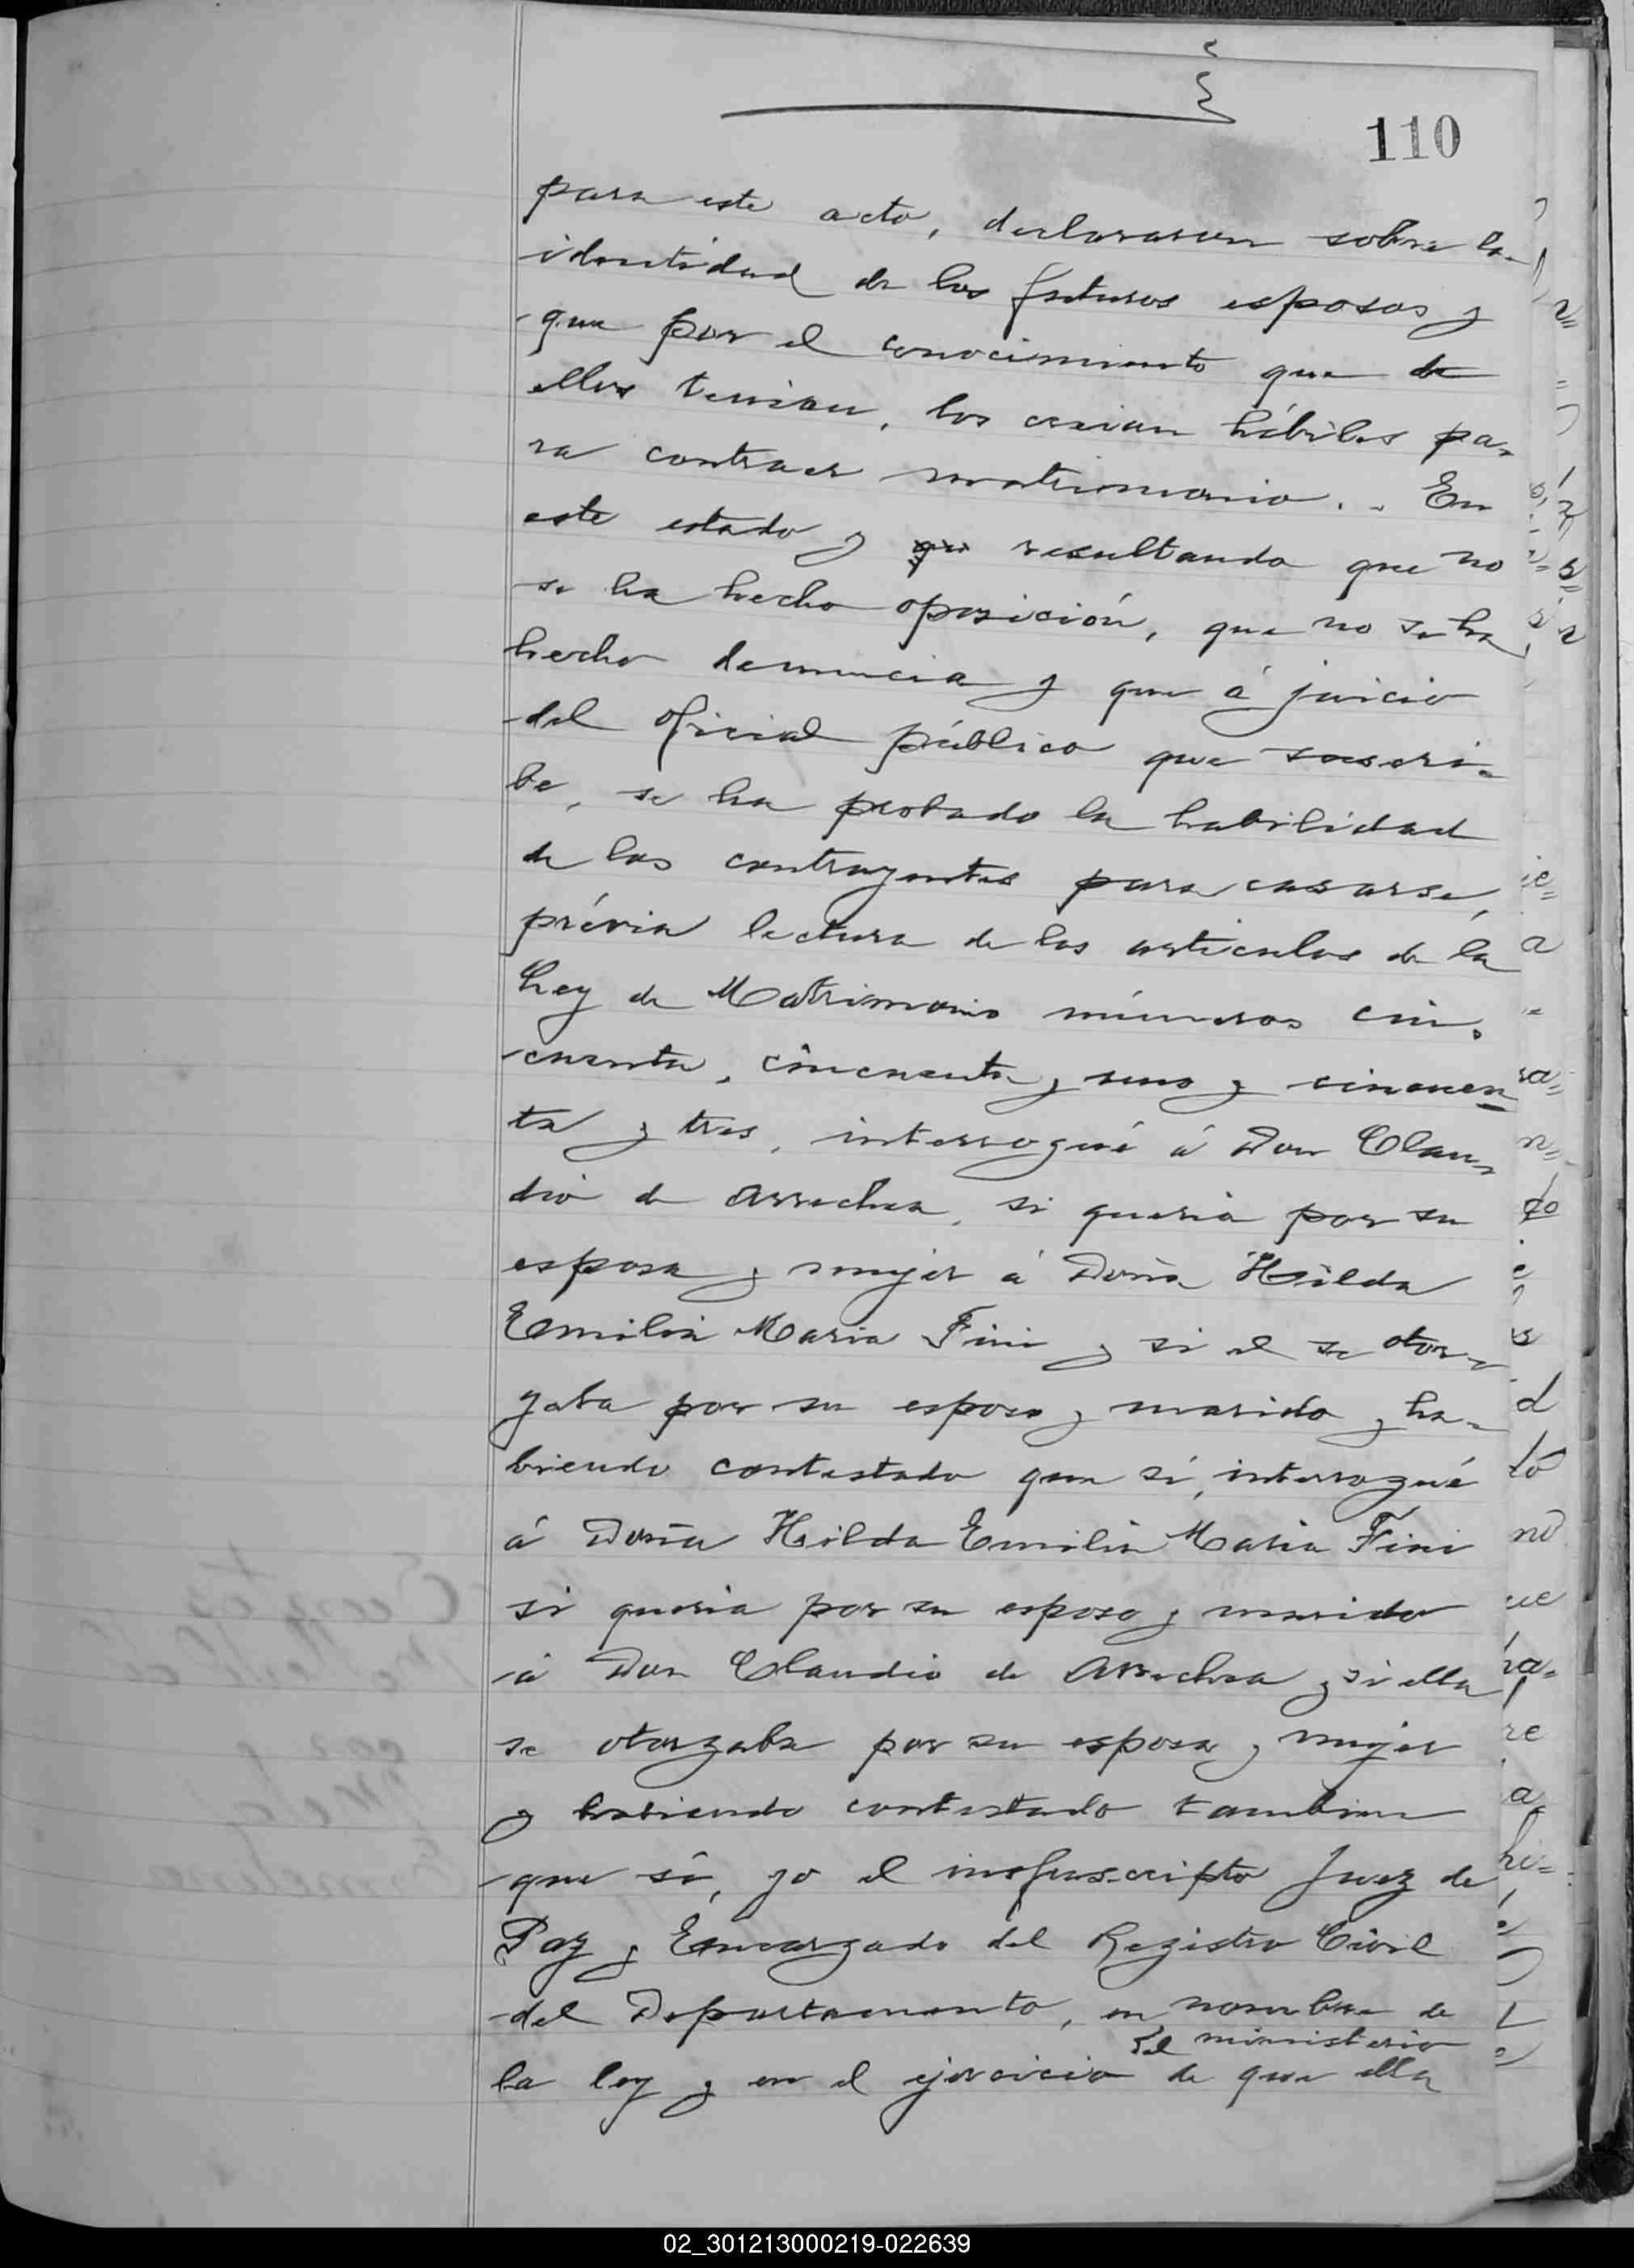 110
para este acto, declararon sobre la
identidad de los futuros esposos y
que por el conocimiento que de
ellos tenian, los creian hábiles pa-
ra contraer matrimonio. - En
este estado y que resultando que no
se ha hecho oposición, que no se ha
hecho denuncia y que á juicio
del oficial público que suscri-
be, se ha probado la habilidad
de los contrayentes para casarse,
prévia lectura de los articulos de la
Ley de Matrimonio números cin-
cuenta, cincuenta y uno y cincuen
ta y tres, interrogué á Don Clau-
dio de Arrechea, si queria por su
esposa y mujer á Doña Hilda
Emilia Maria Fini y si el se otor-
gaba por su esposo y marido y ha-
biendo contestado que sí, interrogué
á Doña Hilda Emilia Maria Fini
si queria por su esposo y marido
á Don Claudio de Arrechea y si ella
se otorgaba por su esposa y mujer
y habiendo contestado tambien
que sí, yo el infrascripto Juez de
Paz y Encargado del Registro Civil
del Departamento, en nombre de
del ministerio
la ley y en el ejercicio de que ella
02_301213000219-022639